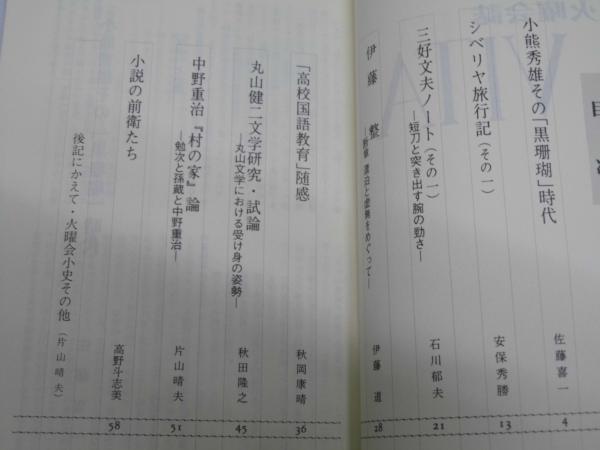 目次
小熊秀雄その「黒珊瑚」時代 佐藤喜一 4
シベリヤ旅行記（その一） 安保秀勝 13
三好文夫ノート（その一） 石川郁夫 21
―短刀と突き出す腕の勁さ―
伊藤整 伊藤道 28
虚無をめぐって―
「高校国語教育」随感 秋岡康晴 36
丸山健二文学研究・試論 秋田隆之 45
―丸山文学における受け身の姿勢―
中野重治『村の家』論 片山晴夫 51
―勉次と孫蔵と中野重治―
小説の前衛たち 高野斗志美 58
後記にかえて・火曜会小史その他 （片山晴夫）